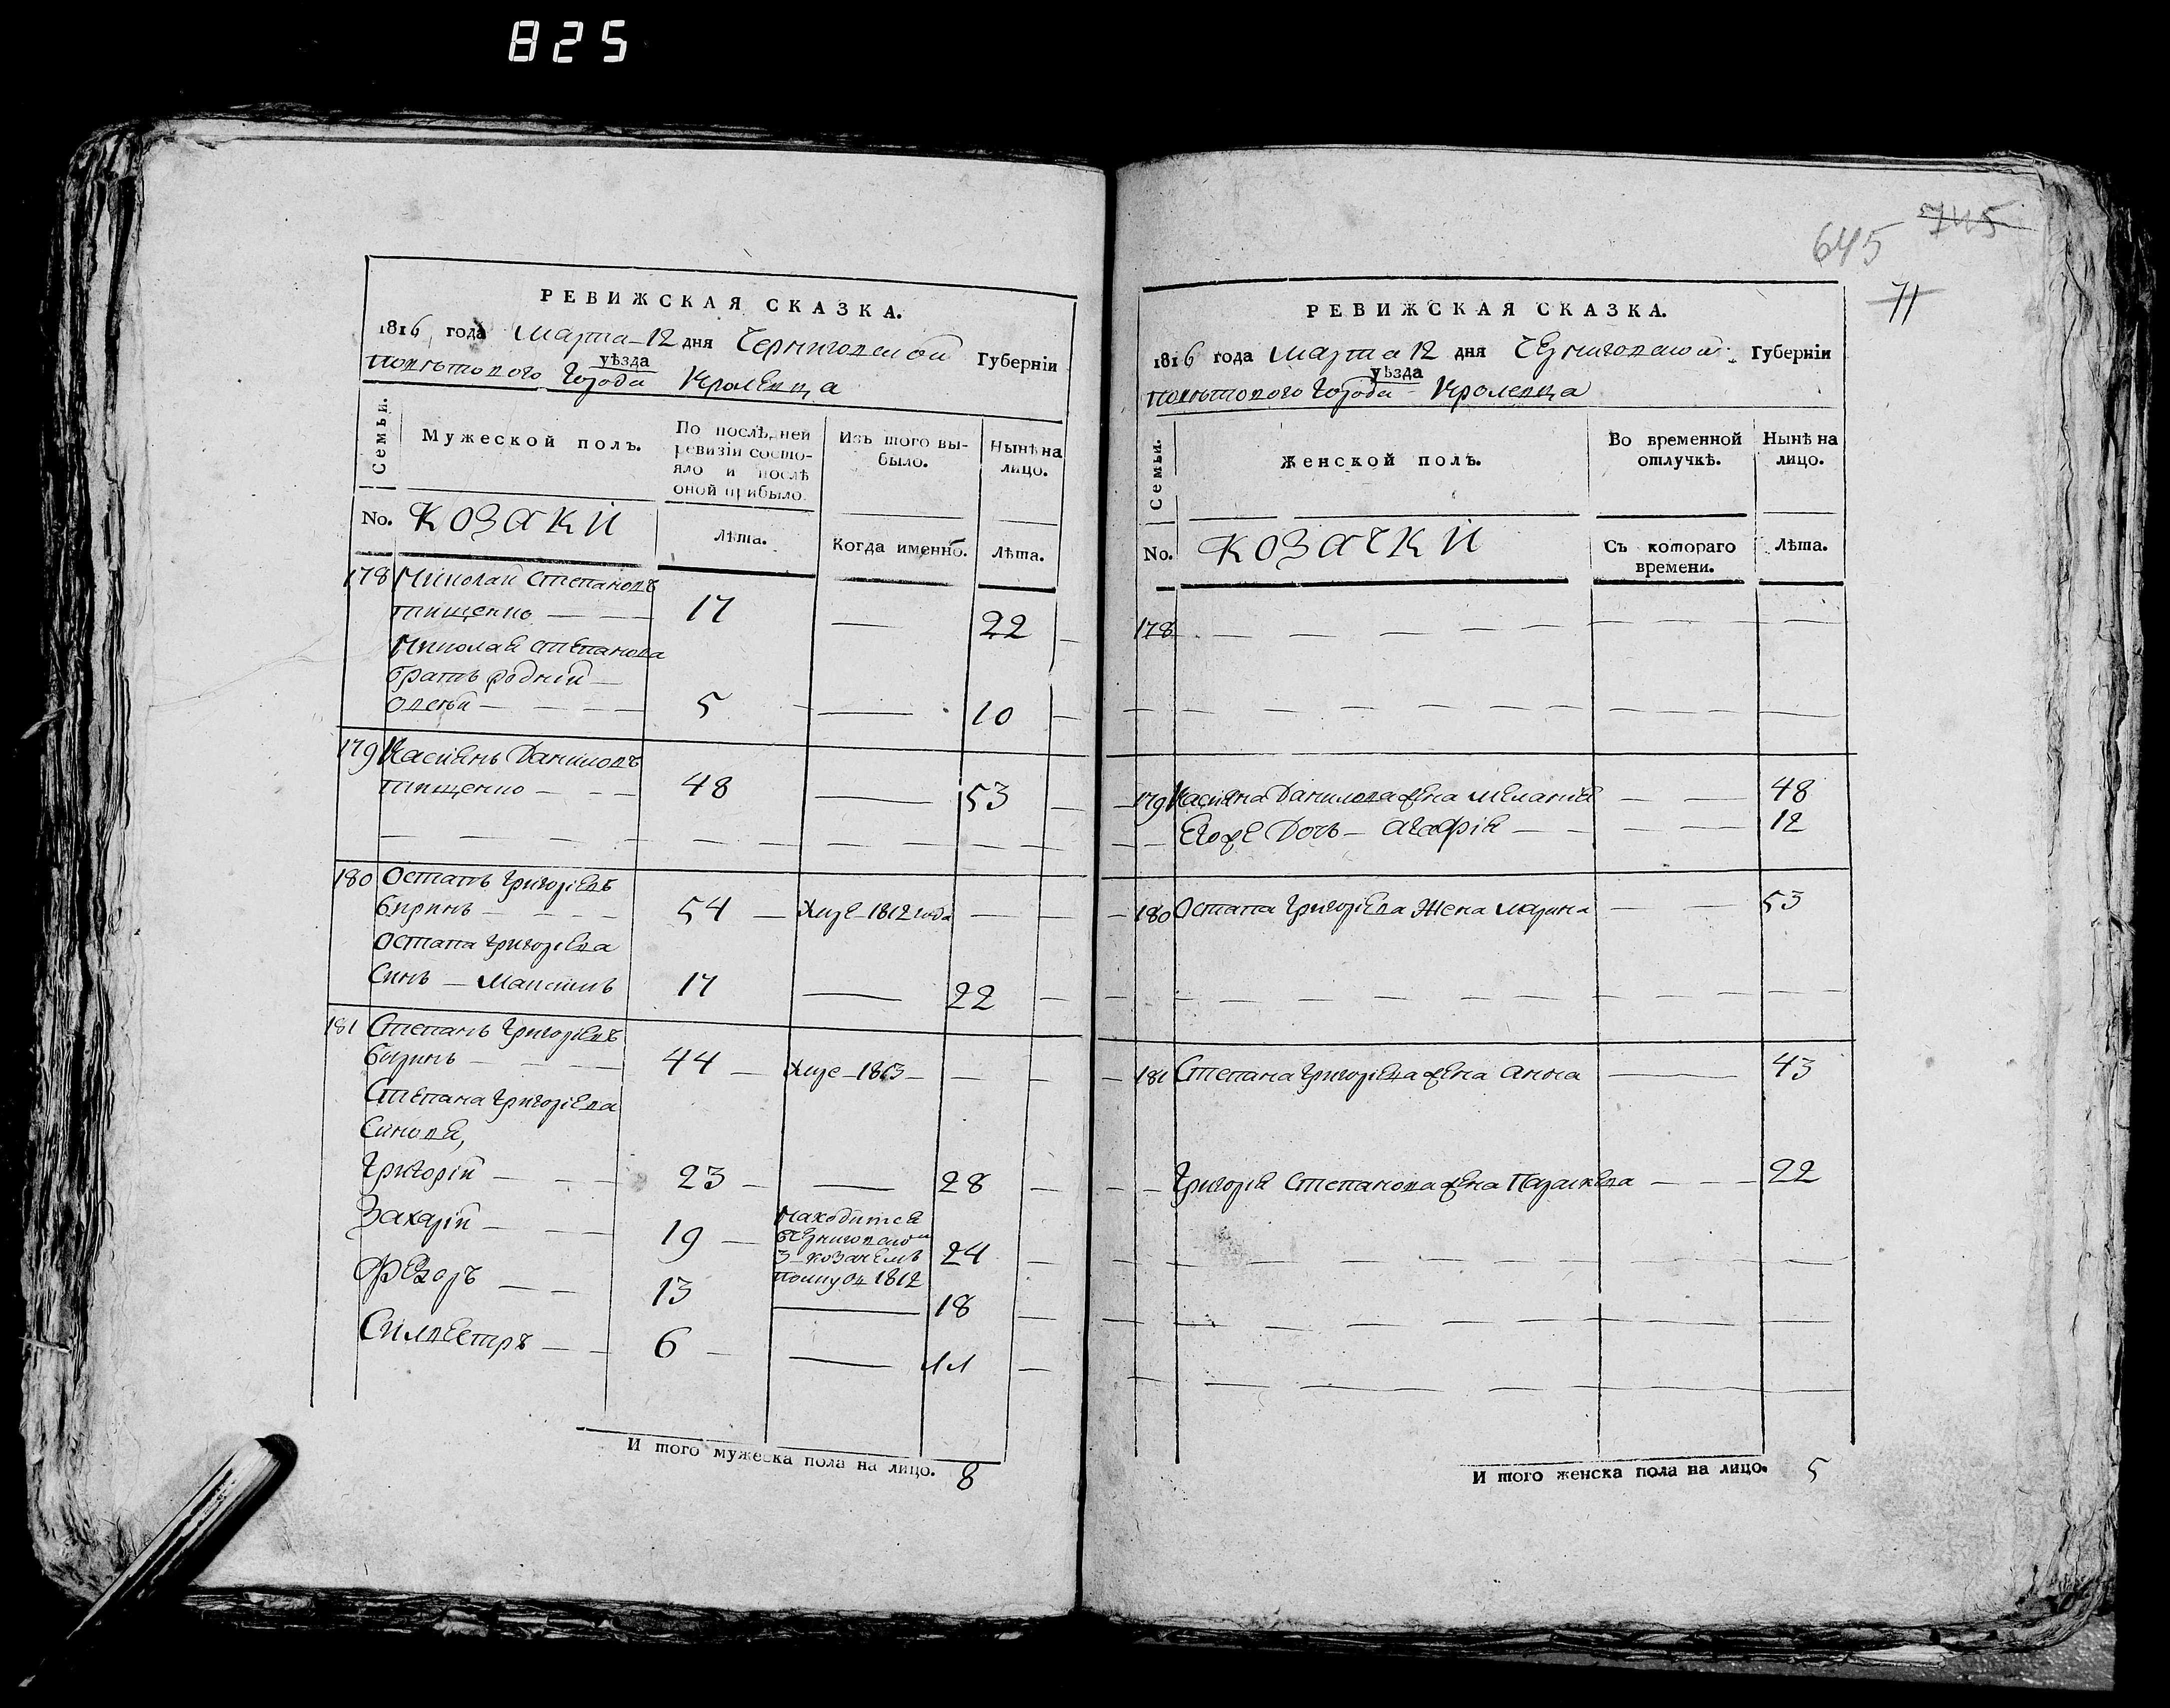 825
РЕВИЖСКАЯ СКАЗКА.
1816 года Марта 12 дня Черниговской Губерніи
уѣзда
повѣтового Города Кролевца
Семьи.
Мужеской полъ.
По послѣдней ревизіи состояло и послѣ оной прибыло.
Изъ того выбыло.
Нынѣ на лицо.
No. КОЗАКИ
Лѣта.
Когда именно.
Лѣта.
178 Николай Степановъ
тищенко 17 22
Николая Степанова
братъ родній
5 10
179 Касиянъ Даниловъ
тищенко 48 53
180 Остапъ Григоріевъ
Биринъ 54 Умре 1812 года
Остапа Григоріева
Синъ 17 22
181 Степанъ Григоріевъ
Биринъ 44 Умре 1813
Степана Григоріева
Синовя,
Григорій 23 28
Захарій 19 Находится 24
1812
Федоръ 13 18
Силвестръ 6 11
И того мужеска пола на лицо. 8
645 745
71
РЕВИЖСКАЯ СКАЗКА.
1816 года Марта 12 дня Черниговской Губерніи
уѣзда
повѣтового Города Кролевца
Семьи.
Женской полъ.
Во временной отлучкѣ.
Нынѣ на лицо.
No. КОЗАЧКИ
Съ котораго времени.
Лѣта.
178
179 Касияна Данилова жена Меланія 48
Егоже Дочь Агафія 12
180 Остапа Григоріева Жена Марина 53
181 Степана Григоріева жена Анна 43
Григорія Степанова жена Параскева 22
И того женска пола на лицо. 5